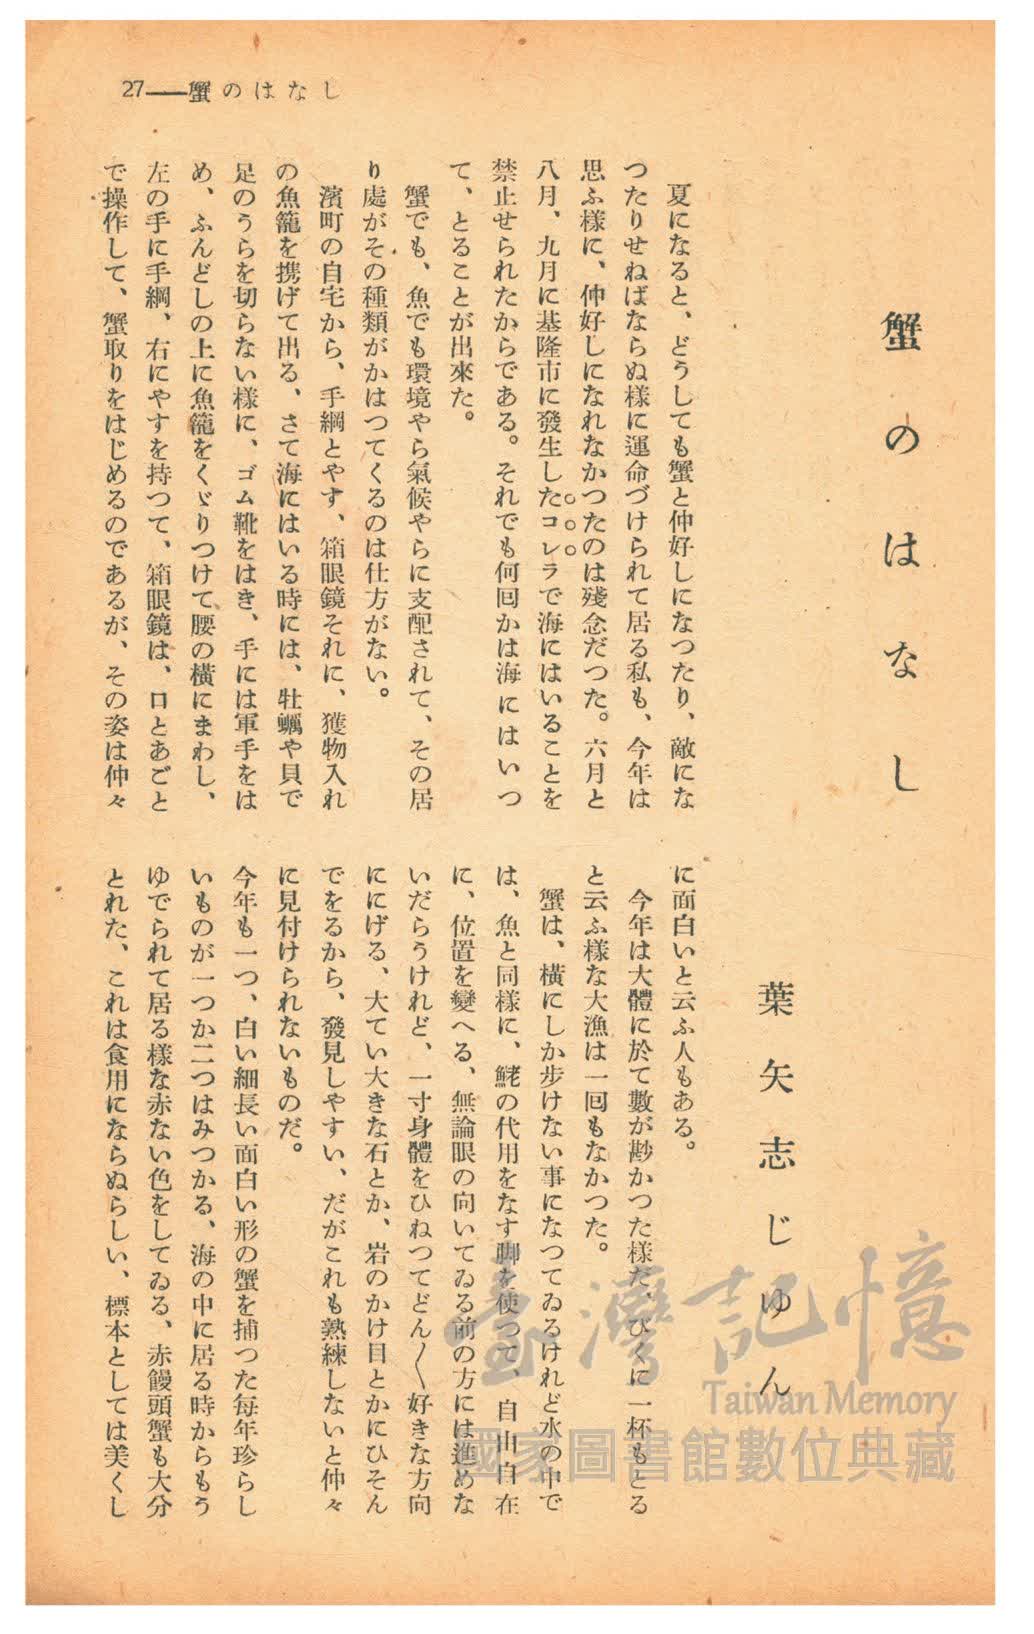 27――蟹のはなし
蟹のはなし
葉矢志じゆん
夏になると、どうしても蟹と仲好しになつたり、敵にな
つたりせねばならぬ様に運命づけられて居る私も、今年は
思ふ様に、仲好しになれなかつたのは殘念だつた。六月と
八月、九月に基隆市に發生したコレラで海にはいることを
禁止せられたからである。それでも何回かは海にはいつ
て、とることが出來た。
蟹でも、魚でも環境やら氣候やらに支配されて、その居
り處がその種類がかはつてくるのは仕方がない。
濱町の自宅から、手網とやす、箱眼鏡それに、獲物入れ
の魚籠を携げて出る、さて海にはいる時には、牡蠣や貝で
足のうらを切らない様に、ゴム靴をはき、手には軍手をは
め、ふんどしの上に魚籠をくゞりつけて腰の横にまわし、
左の手に手網、右にやすを持つて、箱眼鏡は、口とあごと
で操作して、蟹取りをはじめるのであるが、その姿は仲々
に面白いと云ふ人もある。
今年は大體に於て數が尠かつた様だ、びくに一杯もとる
と云ふ様な大漁は一回もなかつた。
蟹は、横にしか歩けない事になつてゐるけれど水の中で
は、魚と同様に、鰭の代用をなす脚を使つて、自由自在
に、位置を變へる、無論眼の向いてゐる前の方には進めな
いだらうけれど、一寸身體をひねつてどん〱好きな方向
ににげる、大てい大きな石とか、岩のかけ目とかにひそん
でをるから、發見しやすい、だがこれも熟練しないと仲々
に見付けられないものだ。
今年も一つ、白い細長い面白い形の蟹を捕つた每年珍らし
いものが一つか二つはみつかる、海の中に居る時からもう
ゆでられて居る様な赤ない色をしてゐる、赤饅頭蟹も大分
とれた、これは食用にならぬらしい、標本としては美くし
臺灣記憶
Taiwan Memory
國家圖書館數位典藏